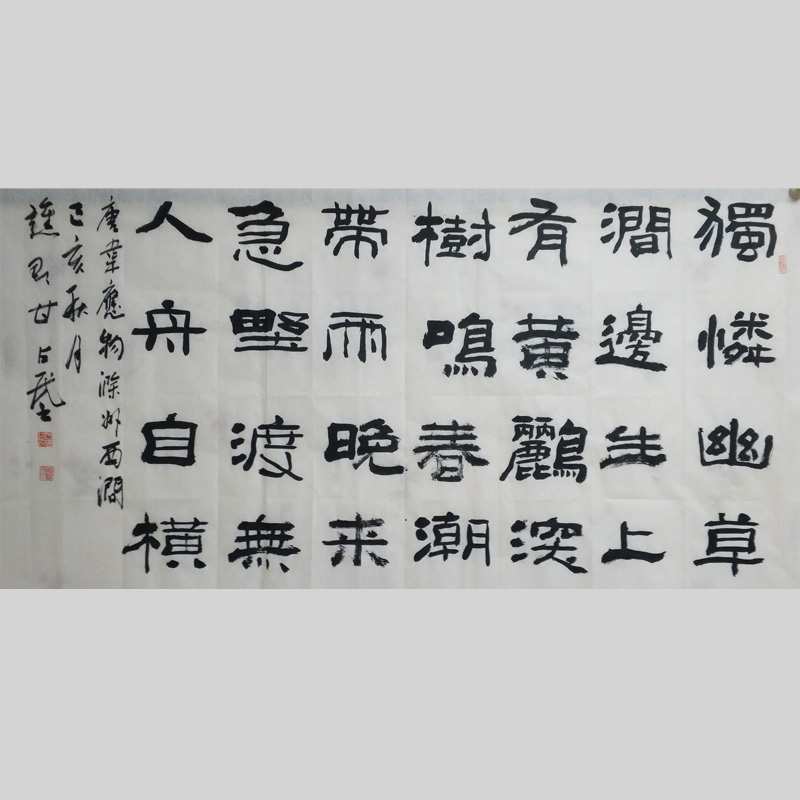 獨憐幽草
澗邊生上
有黃鸝深
樹鳴春潮
帶雨晚来
急野渡無
人舟自橫
唐韋應物滁州西澗
己亥秋月
甘占